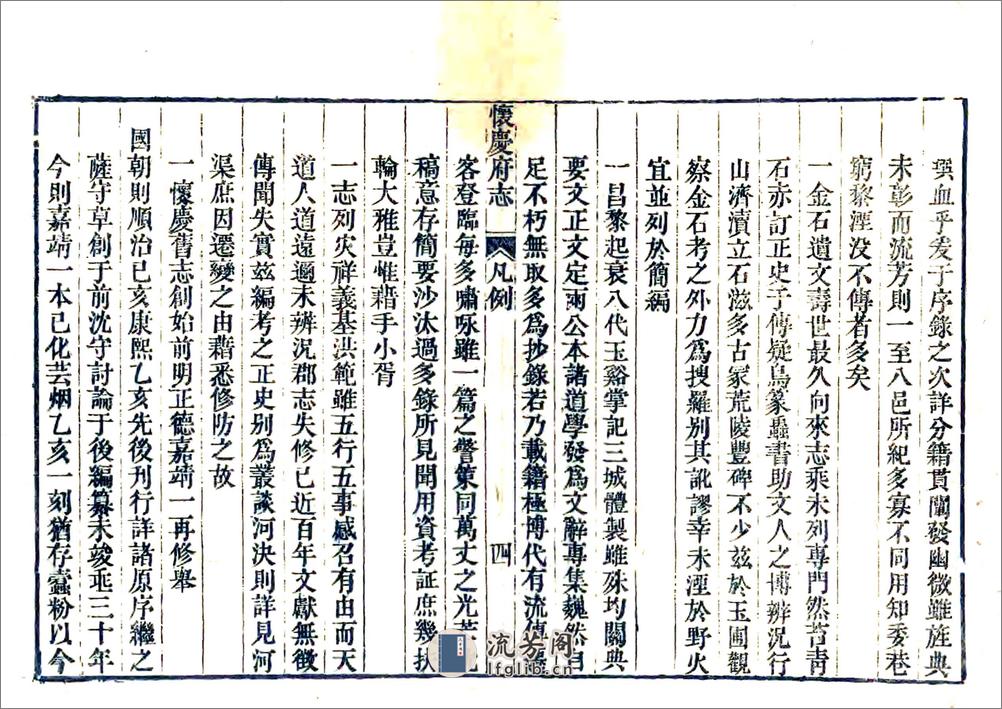 巽血乎爰于序錄之次詳分籍貫闡發幽微雖旌典
未彰而流芳則一至八邑所紀多寡不同用知委巷
窮黎湮没不傳者多矣
一金石遺文壽世最久向來志乘未列專門然苔青
石赤訂正史子傳疑鳥篆蟲書助文人之博辨況行
山濟瀆立石滋多古冢荒陵豐碑不少兹於玉圃觀
察金石考之外力爲搜羅别其訛謬幸未湮於野火
宜並列於簡編
一昌黎起衰八代玉谿掌記三城體製雖殊均關典
要文正文定兩公本諸道學發爲文辭專集巍然自
足不朽無取多爲抄錄若乃載籍極博代有流傳
客登臨每多嘯咏雖一篇之警策同萬丈之光芒
稿意存簡要沙汰過多錄所見聞用資考証庶幾扶
輪大雅豈惟藉手小胥
一志列災祥義基洪範雖五行五事感召有由而天
道人道遠邇未辨況郡志失修已近百年文獻無徵
傳聞失實兹編考之正史别爲叢談河決則詳見河
渠庶因遷變之由藉悉修防之故
一懷慶舊志創始前明正德嘉靖一再修舉
國朝則順治己亥康熙乙亥先後刊行詳諸原序繼之
薩守草創于前沈守討論于後編纂未竣乖三十年
今則嘉靖一本已化芸烟乙亥一刻猶存蠹粉以今
懷慶府志
凡例
四
流芳阁
lfglib.com